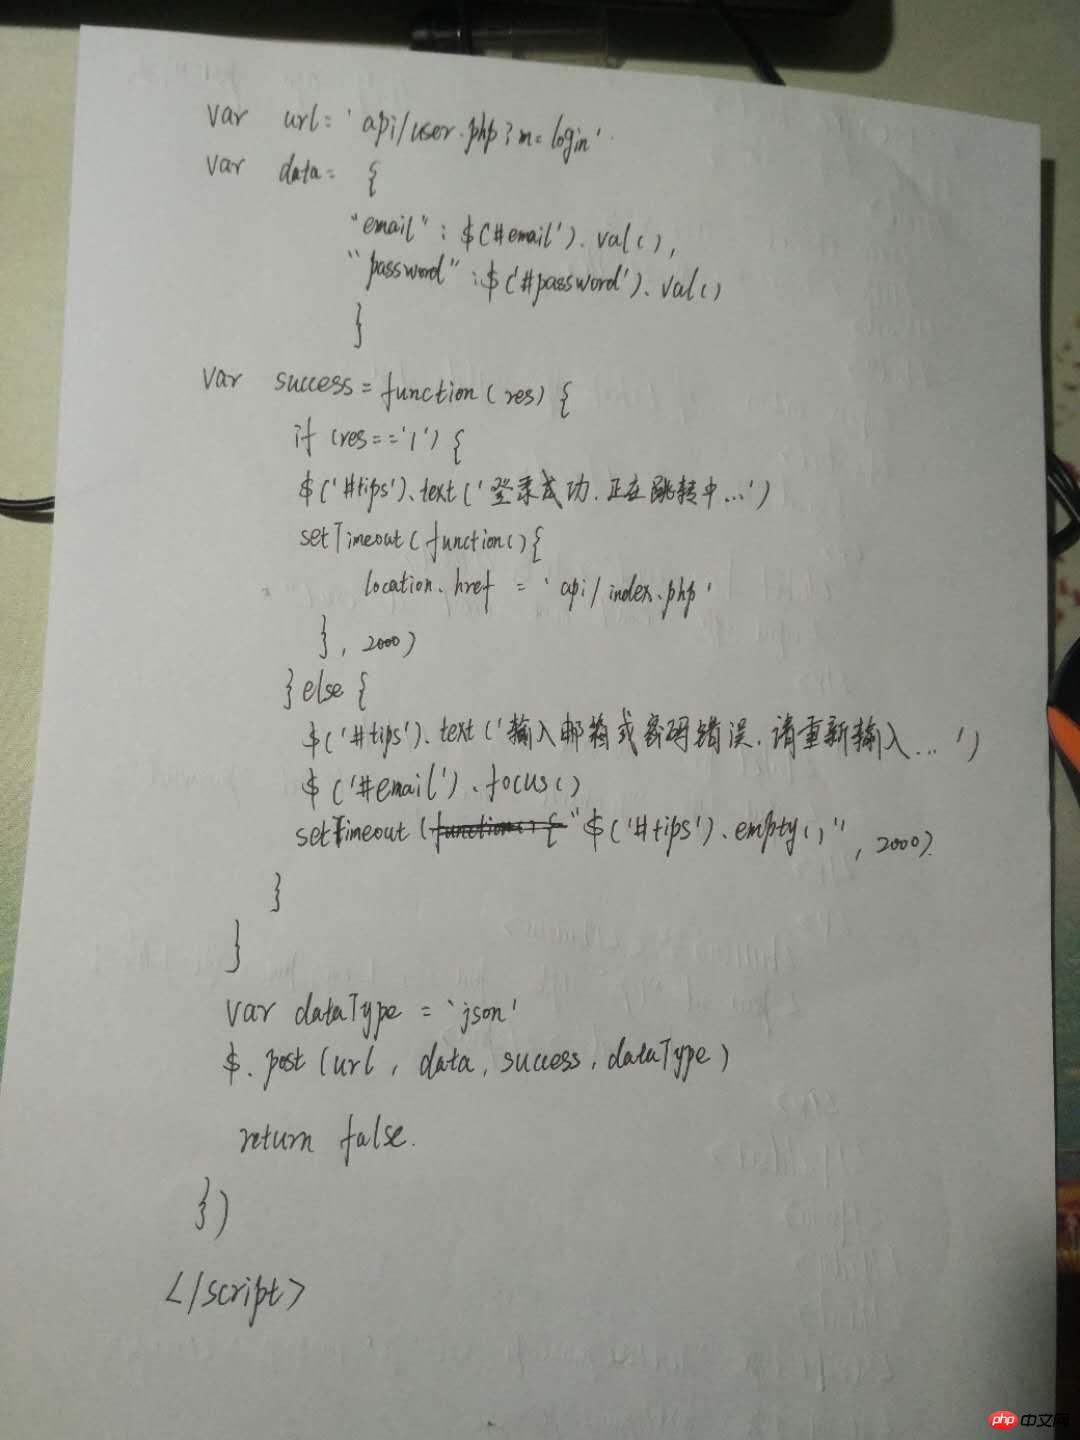 var url= 'api/user.php?m=login'
var data= {
"email" : $(#email').val(),
"password" : $('#password').val()
}
var success = function(res) {
if (res=='1') {
$('#tips').text('登录成功.正在跳转中...')
setTimeout(function(){
location.href = 'api/index.php'
}, 2000)
}else {
$('#tips').text('输入邮箱或密码错误.请重新输入...')
$('#email').focus()
setTimeout(function() { "$('#tips').empty()", 2000).
}
}
var dataType = 'json'
$.post(url, data, success, dataType)
return false.
})
</script>
php 中文网